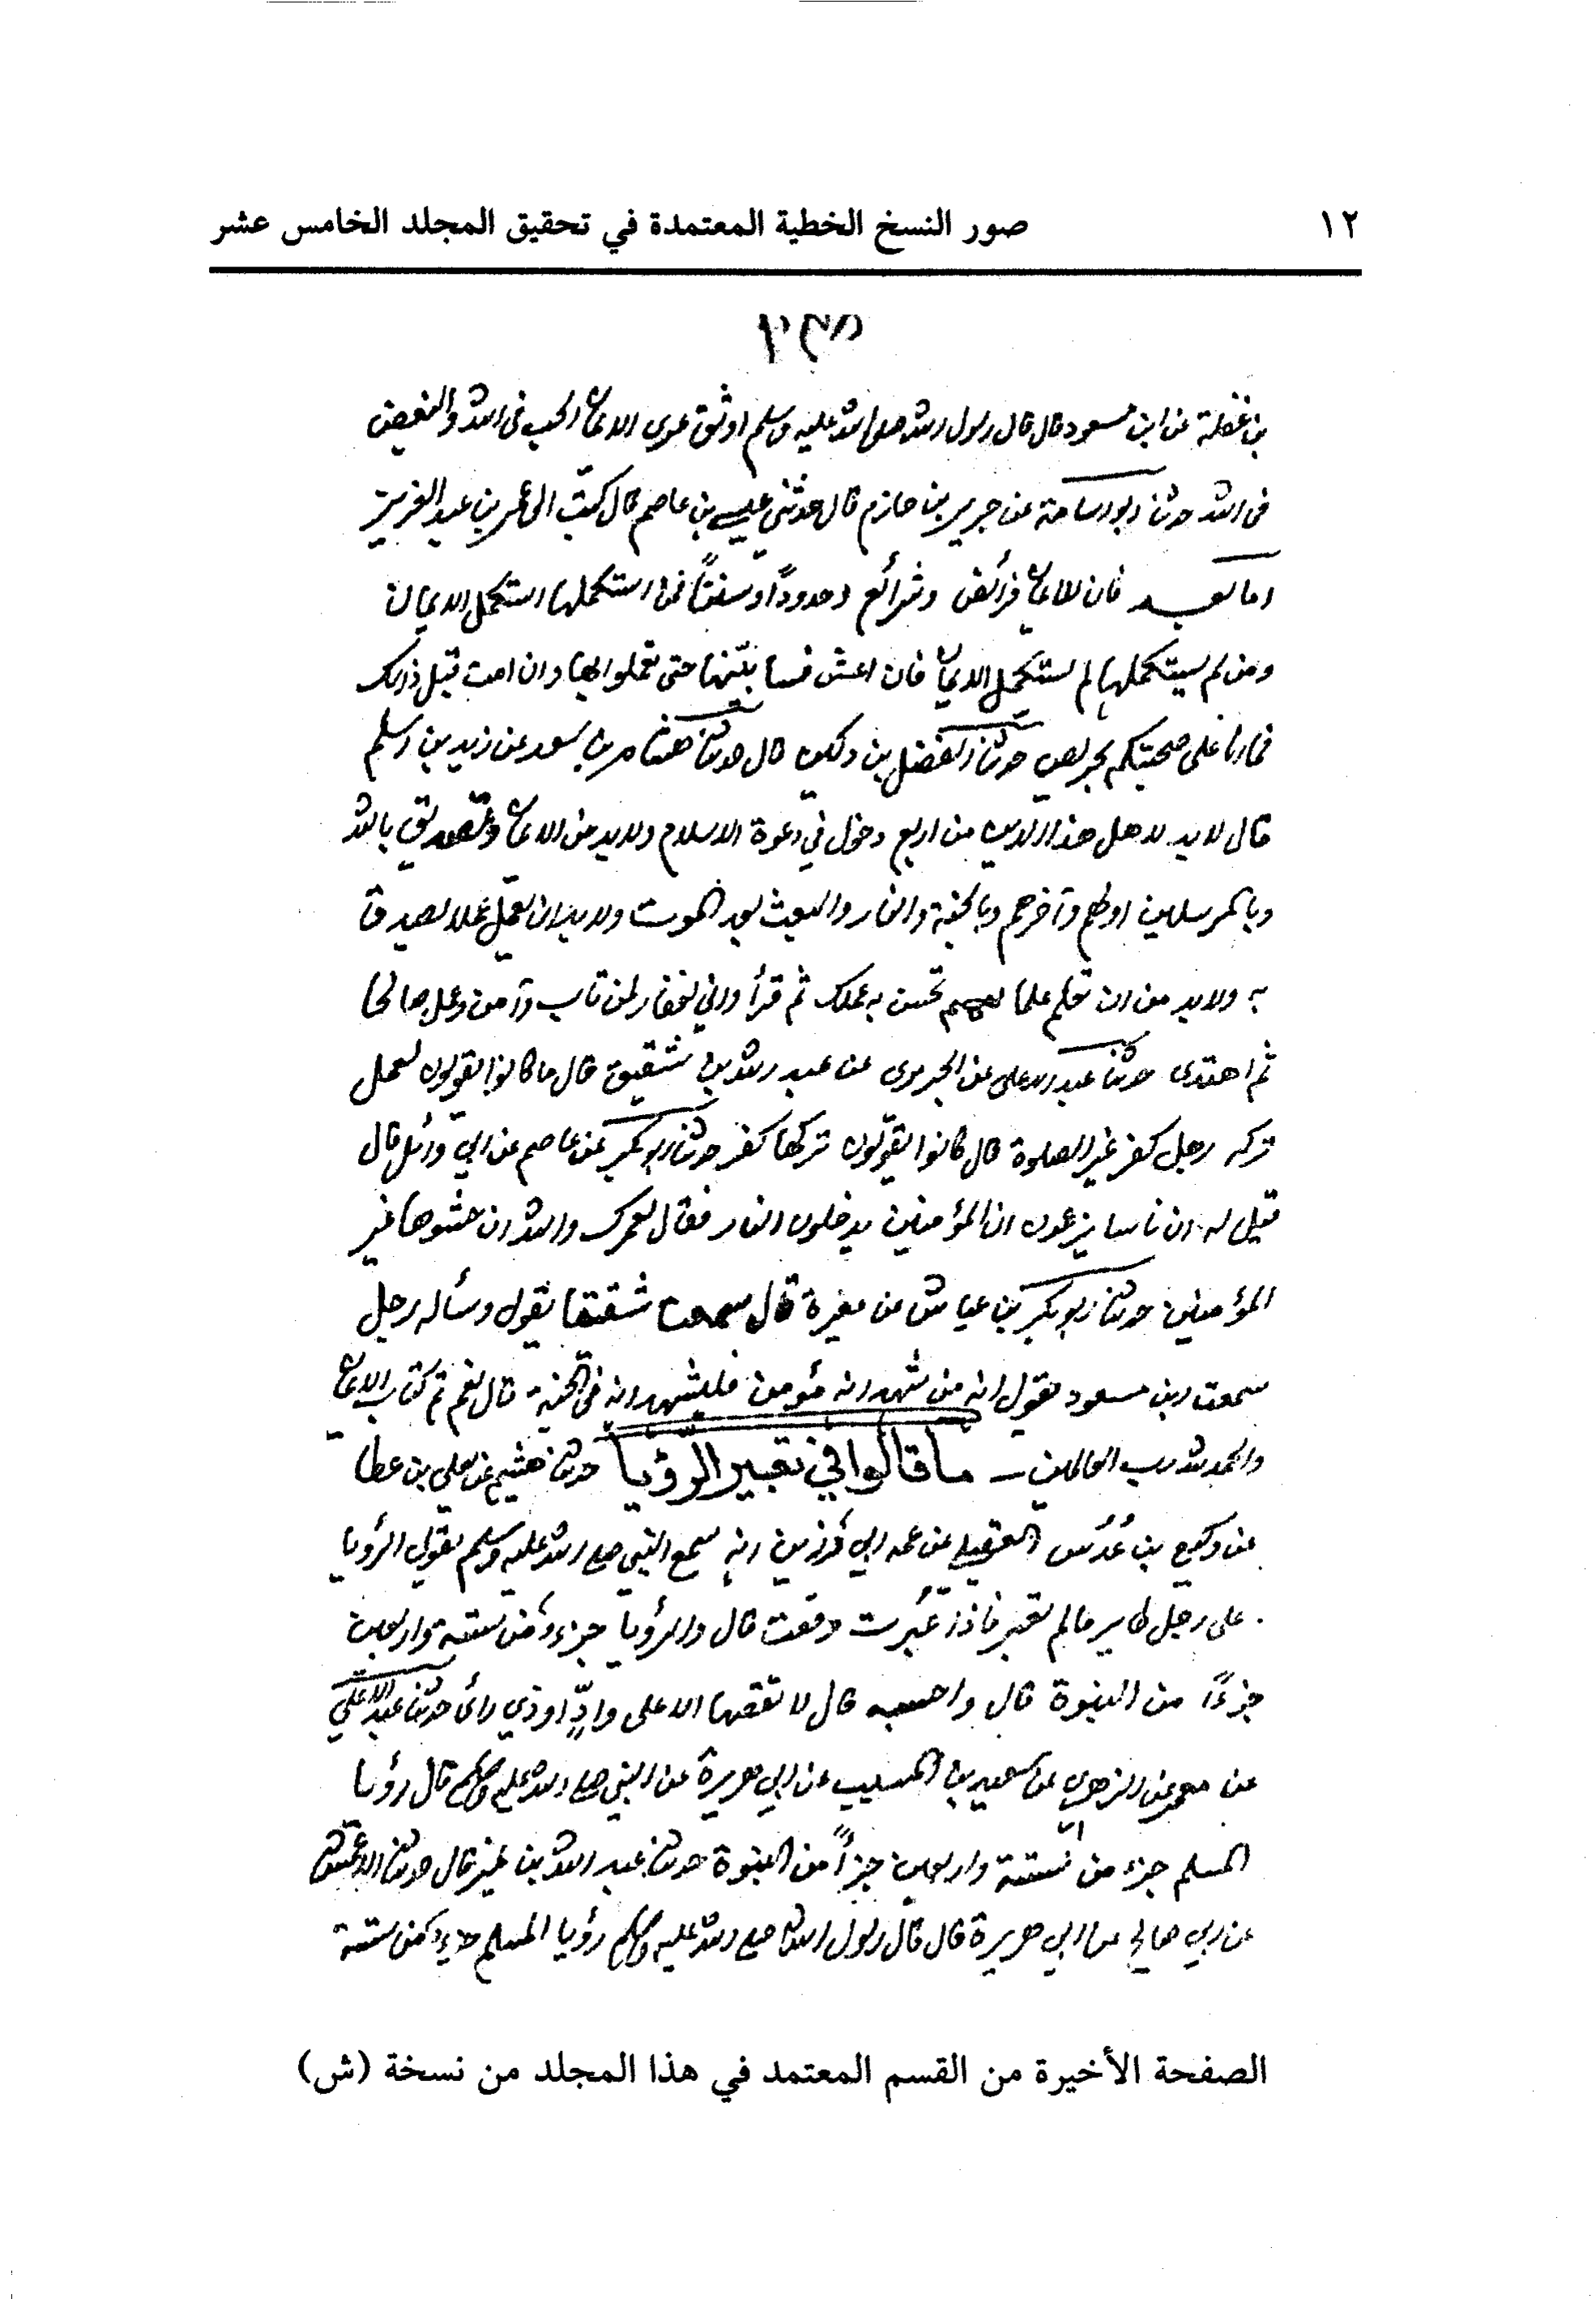 ١٢ صور النسخ الخطية المعتمدة في تحقيق المجلد الخامس عشر
بن غفلة عن ابن مسعود قال قال رسول الله صلى الله عليه وسلم اوثق عرى الايمان الحب فى الله والبغض
فى الله حدثنا ابو اسامة عن جرير بن حازم قال حدثنى عيسى بن عاصم قال كتب الى عمر بن عبد العزيز
اما بعد فان للايمان فرائض وشرائع وحدودًا وسننًا فمن استكملها استكمل الايمان
ومن لم يستكملها لم يستكمل الايمان فان اعش فسابيّنها حتى تعملوا بها وان امت قبل ذالك
فما انا على صحبتكم بحريص حدثنا الفضل بن دكين قال حدثنا هشام بن سعد عن زيد بن اسلم
قال لا بد لاهل هذا الدين من اربع دخول في دعوة الاسلام ولا بد من الايمان وتصديق بالله
وبالمرسلين اولهم وآخرهم وبالجنة والنار والبعث بعد الموت ولا بد ان تعمل عملا تصدق
به ولا بد من ان تعلم علما تحسن به عملك ثم قرأ واني لغفار لمن تاب وآمن وعمل صالحا
ثم اهتدى حدثنا عبد الاعلى عن الجريرى عن عبد الله بن شقيق قال ما كانوا يقولون لعمل
تركه رجل كفر غير الصلوة قال كانوا يقولون تركها كفر حدثنا ابو بكر عن عاصم عن ابي وائل قال
قيل له ان ناسا يزعمون ان المؤمنين يدخلون النار فقال لعمرك والله ان حشوها غير
المؤمنين حدثنا ابو بكر بن عياش عن مغيرة قال سمعت شقيقا يقول وسأله رجل
سمعت ابن مسعود يقول انه من شهد انه مؤمن فليشهد انه في الجنة قال نعم تم كتاب الايمان
والحمد لله رب العالمين ـ ما قالوا في تعبير الرؤيا حدثنا هشيم عن يعلى بن عطا
عن وكيع بن عُدُس العقيلي عن عمه ابي رزين انه سمع النبي صلى الله عليه وسلم يقول الرؤيا
على رجل طاير مالم تعبر فاذا عُبرت وقعت قال والرؤيا جزء من ستة واربعين
جزءًا من النبوة قال واحسبه قال لا تقصها الا على وادٍّ او ذي رائ حدثنا عبد الاعلى
عن معمر عن الزهري عن سعيد بن المسيب عن ابي هريرة عن النبي صلى الله عليه وسلم قال رؤيا
المسلم جزء من ستة واربعين جزأً من النبوة حدثنا عبد الله بن نمير قال حدثنا الاعمش
عن ابي صالح عن ابي هريرة قال قال رسول الله صلى الله عليه وسلم رؤيا المسلم جزء من ستة
الصفحة الأخيرة من القسم المعتمد في هذا المجلد من نسخة (ش)